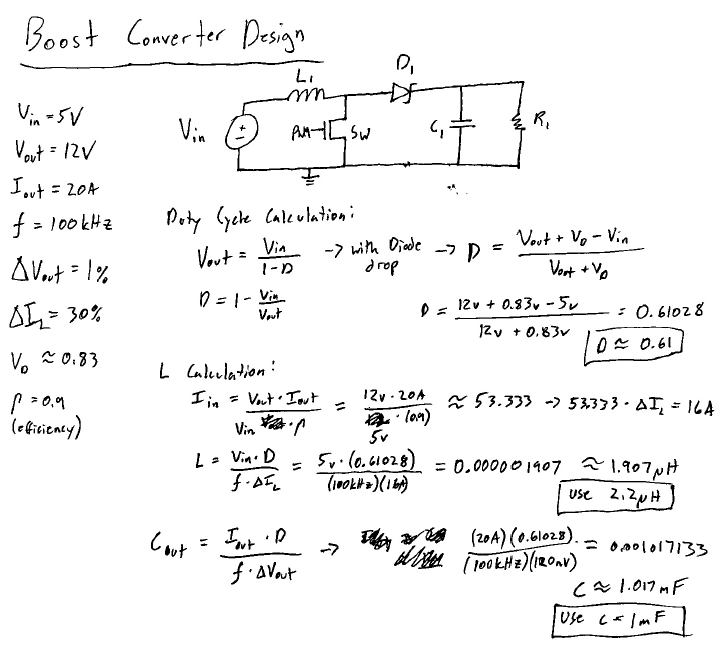 Boost Converter Design
L₁
D₁
Vin
PWM
SW
C₁
R₁
Vin = 5V
Vout = 12V
Iout = 20A
f = 100kHz
ΔVout = 1%
ΔIL = 30%
VD ≈ 0.83
η = 0.9
(efficiency)
Duty Cycle Calculation:
Vout = Vin / (1-D) → with Diode drop → D = (Vout + VD - Vin) / (Vout + VD)
D = 1 - Vin / Vout
D = (12v + 0.83v - 5v) / (12v + 0.83v) = 0.61028
D ≈ 0.61
L Calculation:
Iin = (Vout · Iout) / (Vin · η) = (12v · 20A) / (5v · (0.9)) ≈ 53.333 → 53.333 · ΔIL = 16A
L = (Vin · D) / (f · ΔIL) = (5v · (0.61028)) / ((100kHz)(16A)) = 0.000001907 ≈ 1.907μH
use 2.2μH
Cout = (Iout · D) / (f · ΔVout) → ((20A)(0.61028)) / ((100kHz)(120mV)) = 0.001017133
C ≈ 1.017mF
Use C = 1mF